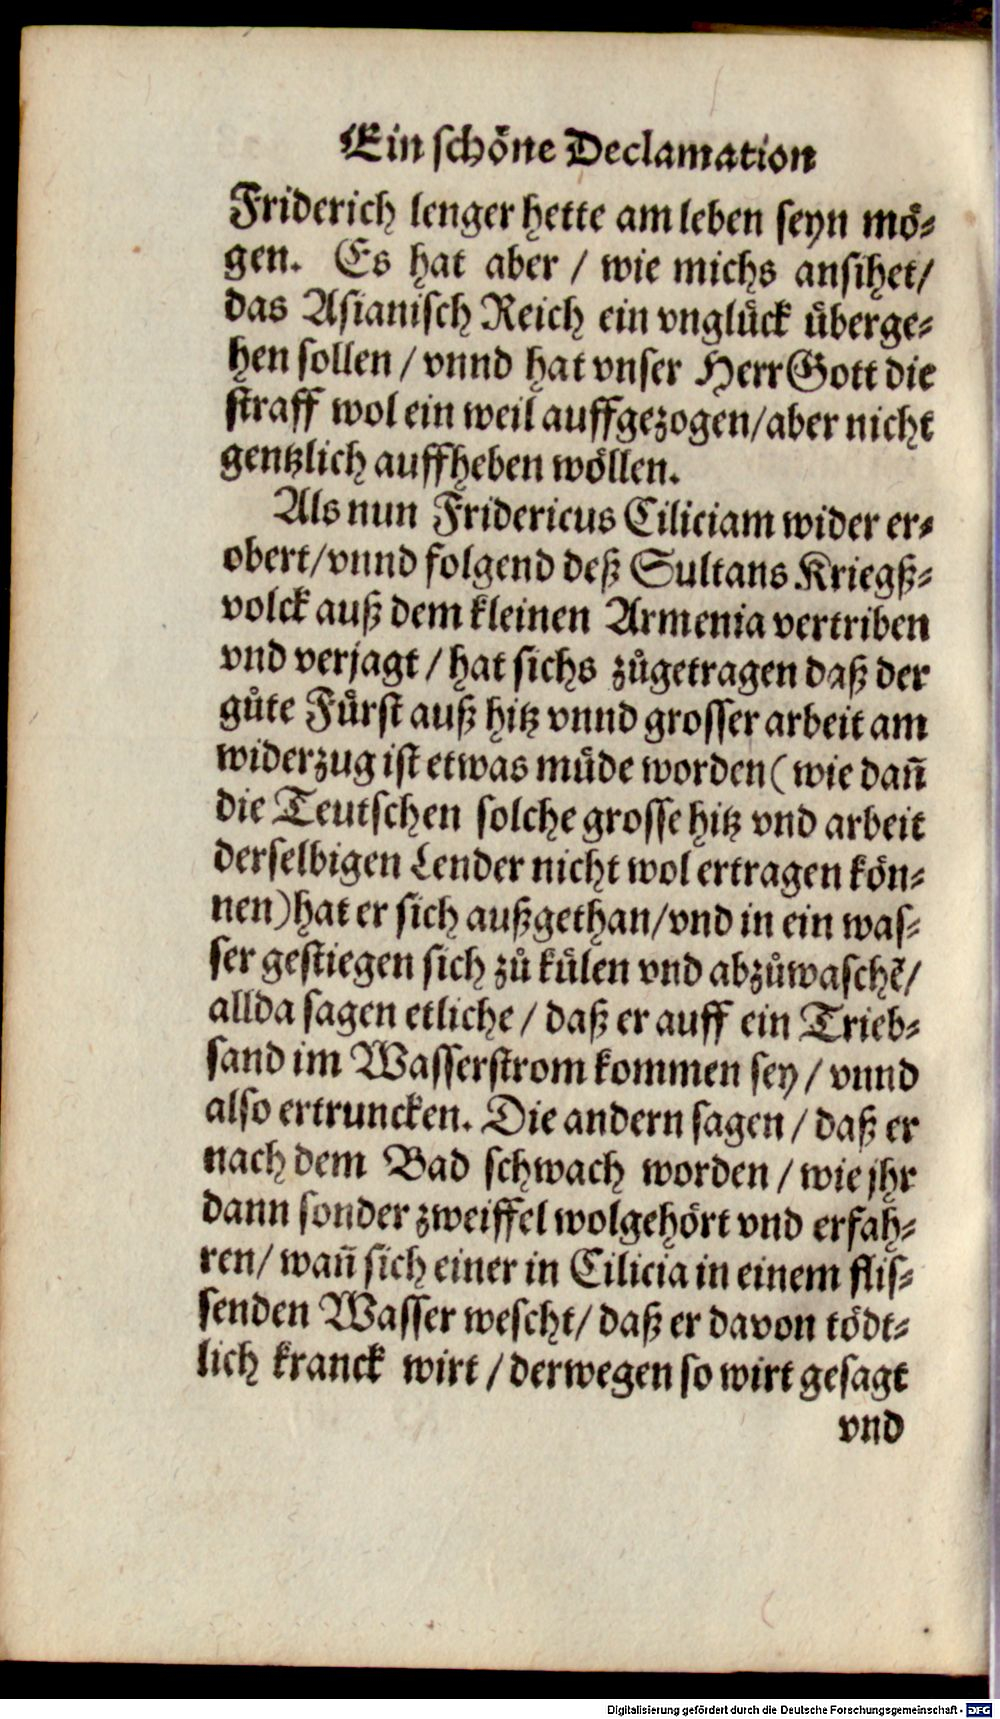 Ein schöne Declamation
Friderich lenger hette am leben seyn mö-
gen. Es hat aber / wie michs ansihet/
das Asianisch Reich ein vnglück überge-
hen sollen / vnnd hat vnser Herr Gott die
straff wol ein weil auffgezogen/aber nicht
gentzlich auffheben wöllen.
Als nun Fridericus Ciliciam wider er-
obert/vnnd folgend deß Sultans Kriegß-
volck auß dem kleinen Armenia vertriben
vnd verjagt / hat sichs zůgetragen daß der
gůte Fürst auß hitz vnnd grosser arbeit am
widerzug ist etwas müde worden (wie dañ
die Teutschen solche grosse hitz vnd arbeit
derselbigen Lender nicht wol ertragen kön-
nen) hat er sich außgethan/vnd in ein was-
ser gestiegen sich zů külen vnd abzůwaschẽ/
allda sagen etliche / daß er auff ein Trieb-
sand im Wasserstrom kommen sey / vnnd
also ertruncken. Die andern sagen / daß er
nach dem Bad schwach worden / wie jhr
dann sonder zweiffel wolgehört vnd erfah-
ren/ wañ sich einer in Cilicia in einem flis-
senden Wasser wescht/ daß er davon tödt-
lich kranck wirt / derwegen so wirt gesagt
vnd
Digitalisierung gefördert durch die Deutsche Forschungsgemeinschaft - DFG